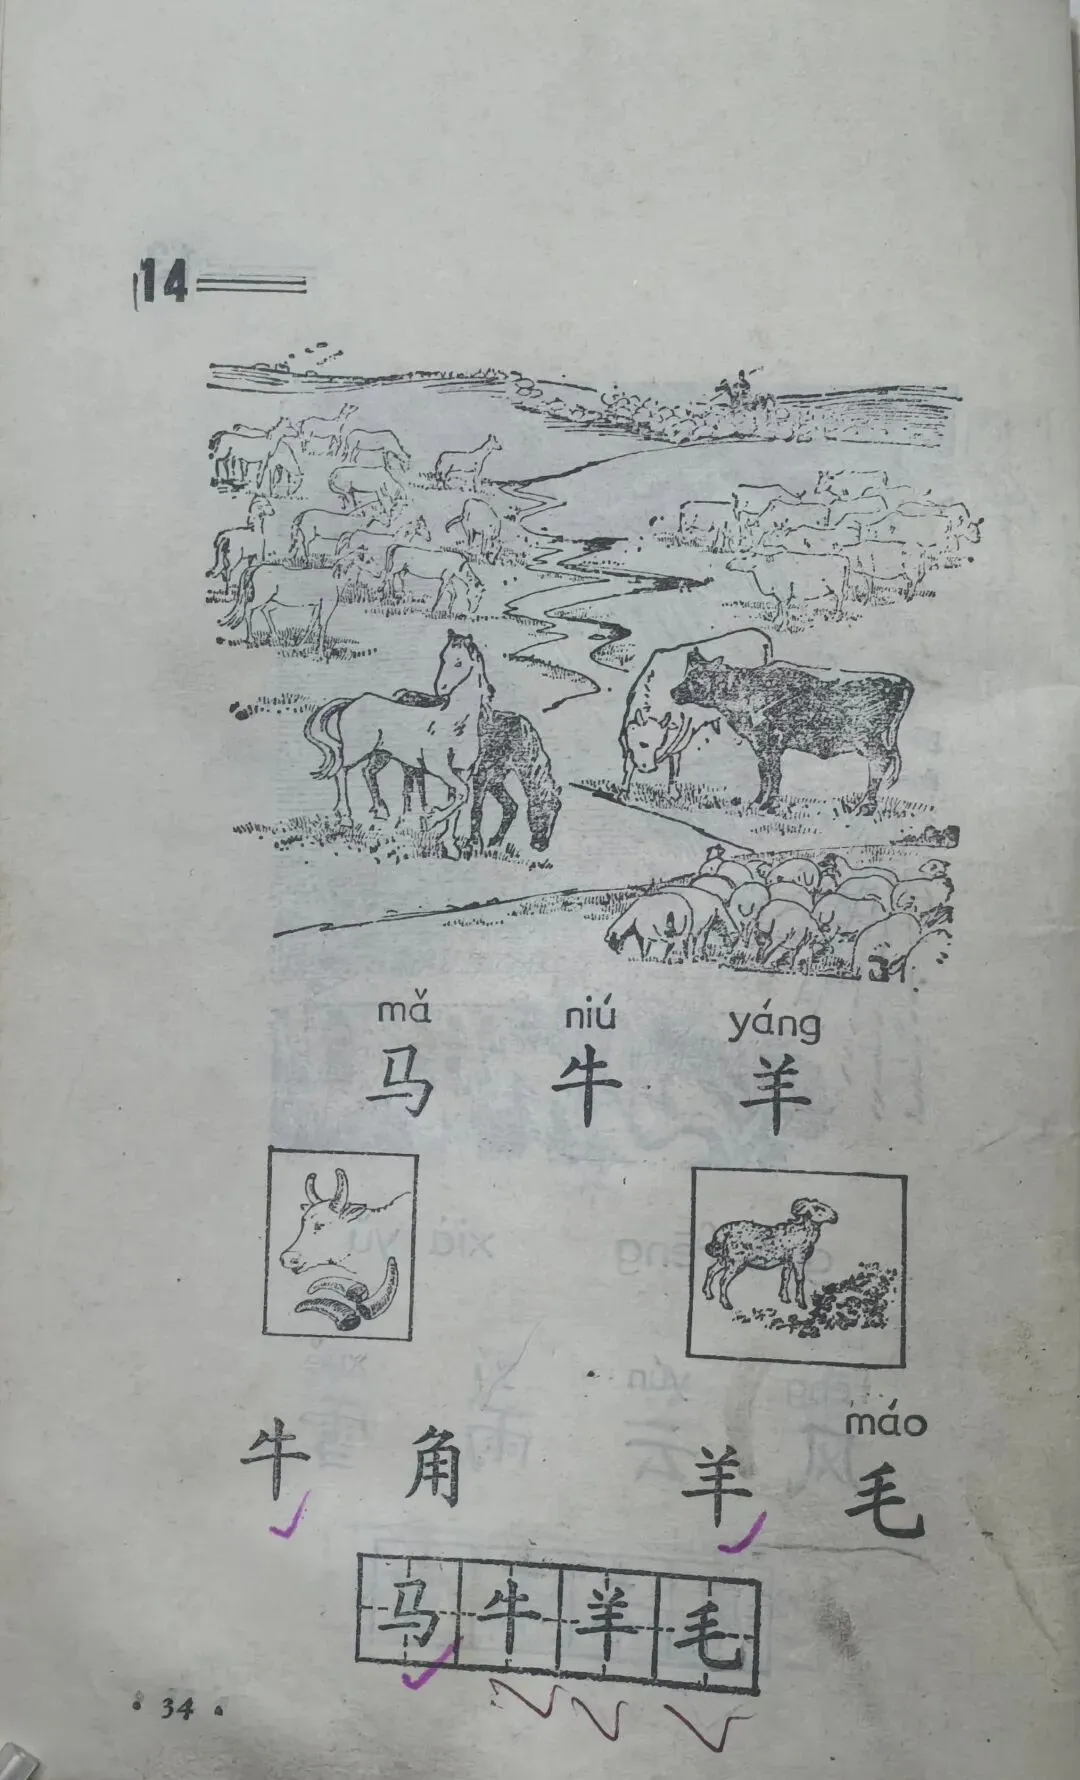 14
mǎ niú yáng
马 牛 羊
máo
牛 角 羊 毛
马 牛 羊 毛
· 34 ·